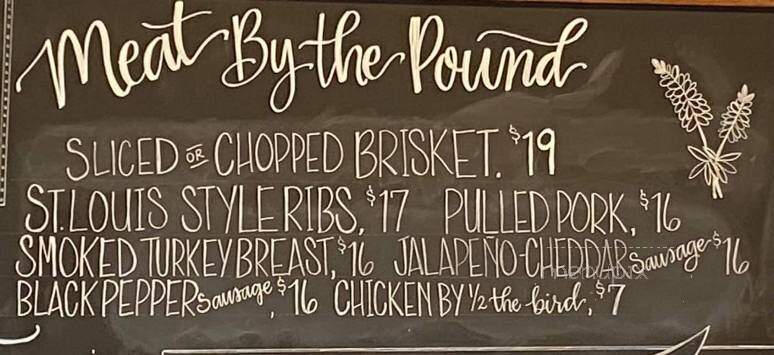 Meat By the Pound
SLICED OR CHOPPED BRISKET. $19
ST. LOUIS STYLE RIBS, $17 PULLED PORK, $16
SMOKED TURKEY BREAST, $16 JALAPEÑO-CHEDDAR Sausage $16
BLACK PEPPER Sausage, $16 CHICKEN BY 1/2 the bird, $7